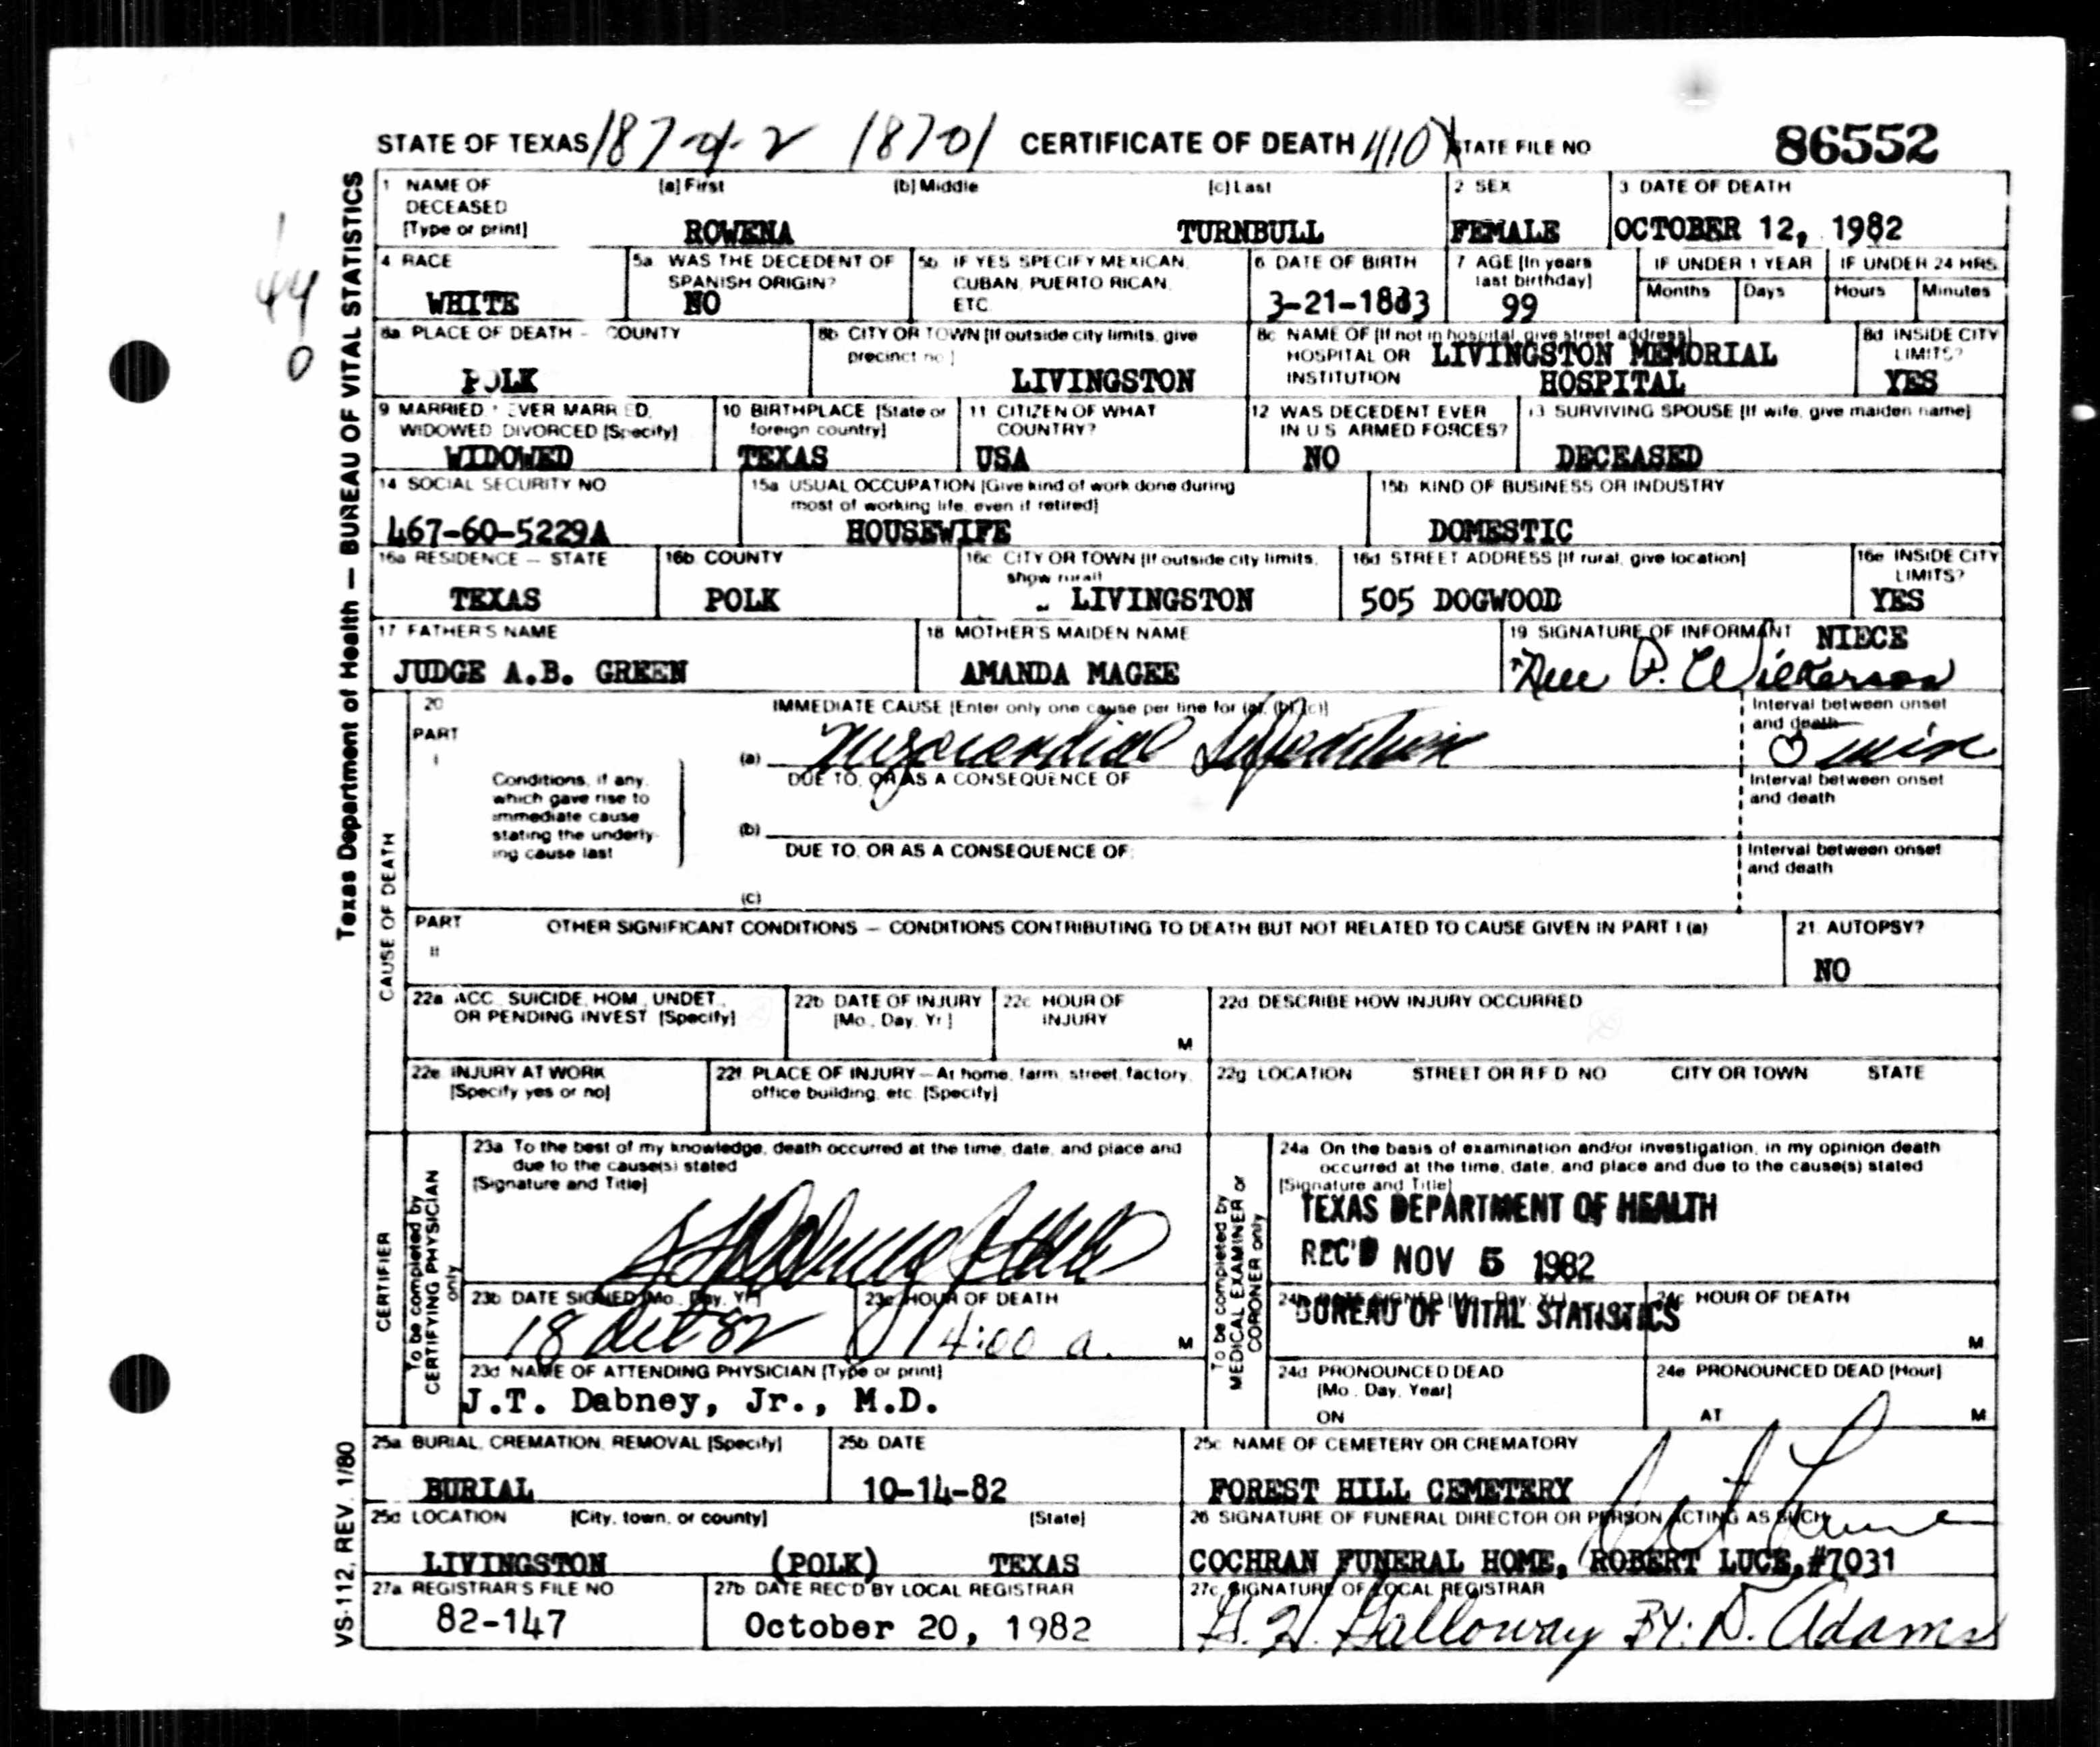 STATE OF TEXAS 187-4-2 18701 CERTIFICATE OF DEATH 410X STATE FILE NO 86552
Texas Department of Health — BUREAU OF VITAL STATISTICS
VS-112, REV. 1/80
1 NAME OF DECEASED [Type or print] [a] First [b] Middle [c] Last
ROWENA TURNBULL
2 SEX
FEMALE
3 DATE OF DEATH
OCTOBER 12, 1982
4 RACE
WHITE
5a WAS THE DECEDENT OF SPANISH ORIGIN?
NO
5b IF YES SPECIFY MEXICAN, CUBAN, PUERTO RICAN, ETC
6 DATE OF BIRTH
3-21-1883
7 AGE [In years last birthday]
99
IF UNDER 1 YEAR
Months Days
IF UNDER 24 HRS
Hours Minutes
8a PLACE OF DEATH - COUNTY
POLK
8b CITY OR TOWN [If outside city limits, give precinct no.]
LIVINGSTON
8c NAME OF [If not in hospital, give street address] HOSPITAL OR INSTITUTION
LIVINGSTON MEMORIAL
HOSPITAL
8d INSIDE CITY LIMITS?
YES
9 MARRIED, NEVER MARRIED, WIDOWED DIVORCED [Specify]
WIDOWED
10 BIRTHPLACE [State or foreign country]
TEXAS
11 CITIZEN OF WHAT COUNTRY?
USA
12 WAS DECEDENT EVER IN U S ARMED FORCES?
NO
13 SURVIVING SPOUSE [If wife, give maiden name]
DECEASED
14 SOCIAL SECURITY NO
467-60-5229A
15a USUAL OCCUPATION [Give kind of work done during most of working life, even if retired]
HOUSEWIFE
15b KIND OF BUSINESS OR INDUSTRY
DOMESTIC
16a RESIDENCE — STATE
TEXAS
16b COUNTY
POLK
16c CITY OR TOWN [If outside city limits, show rural]
LIVINGSTON
16d STREET ADDRESS [If rural, give location]
505 DOGWOOD
16e INSIDE CITY LIMITS?
YES
17 FATHER'S NAME
JUDGE A.B. GREEN
18 MOTHER'S MAIDEN NAME
AMANDA MAGEE
19 SIGNATURE OF INFORMANT NIECE
P. Wilkerson
CAUSE OF DEATH
20
PART I
IMMEDIATE CAUSE [Enter only one cause per line for (a), (b), (c)]
Conditions, if any, which gave rise to immediate cause stating the underlying cause last
(a) Myocardial Infarction
Interval between onset and death
min
DUE TO, OR AS A CONSEQUENCE OF
(b)
Interval between onset and death
DUE TO, OR AS A CONSEQUENCE OF:
(c)
Interval between onset and death
PART II
OTHER SIGNIFICANT CONDITIONS — CONDITIONS CONTRIBUTING TO DEATH BUT NOT RELATED TO CAUSE GIVEN IN PART I (a)
21. AUTOPSY?
NO
22a ACC, SUICIDE, HOM, UNDET, OR PENDING INVEST [Specify]
22b DATE OF INJURY [Mo., Day, Yr.]
22c HOUR OF INJURY
M
22d DESCRIBE HOW INJURY OCCURRED
22e INJURY AT WORK [Specify yes or no]
22f PLACE OF INJURY — At home, farm, street, factory, office building, etc. [Specify]
22g LOCATION STREET OR R F D NO CITY OR TOWN STATE
CERTIFIER
To be completed by CERTIFYING PHYSICIAN only
23a To the best of my knowledge, death occurred at the time, date, and place and due to the cause(s) stated
[Signature and Title]
23b DATE SIGNED [Mo., Day, Yr.]
18 Oct 82
23c HOUR OF DEATH
4:00 a. M
23d NAME OF ATTENDING PHYSICIAN [Type or print]
J.T. Dabney, Jr., M.D.
To be completed by MEDICAL EXAMINER or CORONER only
24a On the basis of examination and/or investigation, in my opinion death occurred at the time, date, and place and due to the cause(s) stated
[Signature and Title]
TEXAS DEPARTMENT OF HEALTH
REC'D NOV 5 1982
BUREAU OF VITAL STATISTICS
24c HOUR OF DEATH
M
24d PRONOUNCED DEAD [Mo., Day, Year]
ON
24e PRONOUNCED DEAD [Hour]
AT M
25a BURIAL, CREMATION, REMOVAL [Specify]
BURIAL
25b DATE
10-14-82
25c NAME OF CEMETERY OR CREMATORY
FOREST HILL CEMETERY
25d LOCATION [City, town, or county] [State]
LIVINGSTON (POLK) TEXAS
26 SIGNATURE OF FUNERAL DIRECTOR OR PERSON ACTING AS SUCH
COCHRAN FUNERAL HOME, ROBERT LUCE, #7031
27a REGISTRAR'S FILE NO
82-147
27b DATE REC'D BY LOCAL REGISTRAR
October 20, 1982
27c SIGNATURE OF LOCAL REGISTRAR
H. Galloway BY: D. Adams